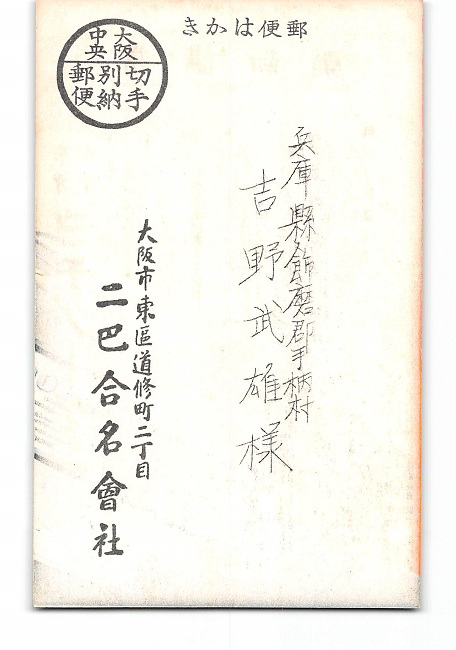 郵便はかき
大阪
中央
切手
別納
郵便
兵庫縣飾磨郡手柄村
吉野武雄様
大阪市東區道修町二丁目
二巴合名會社